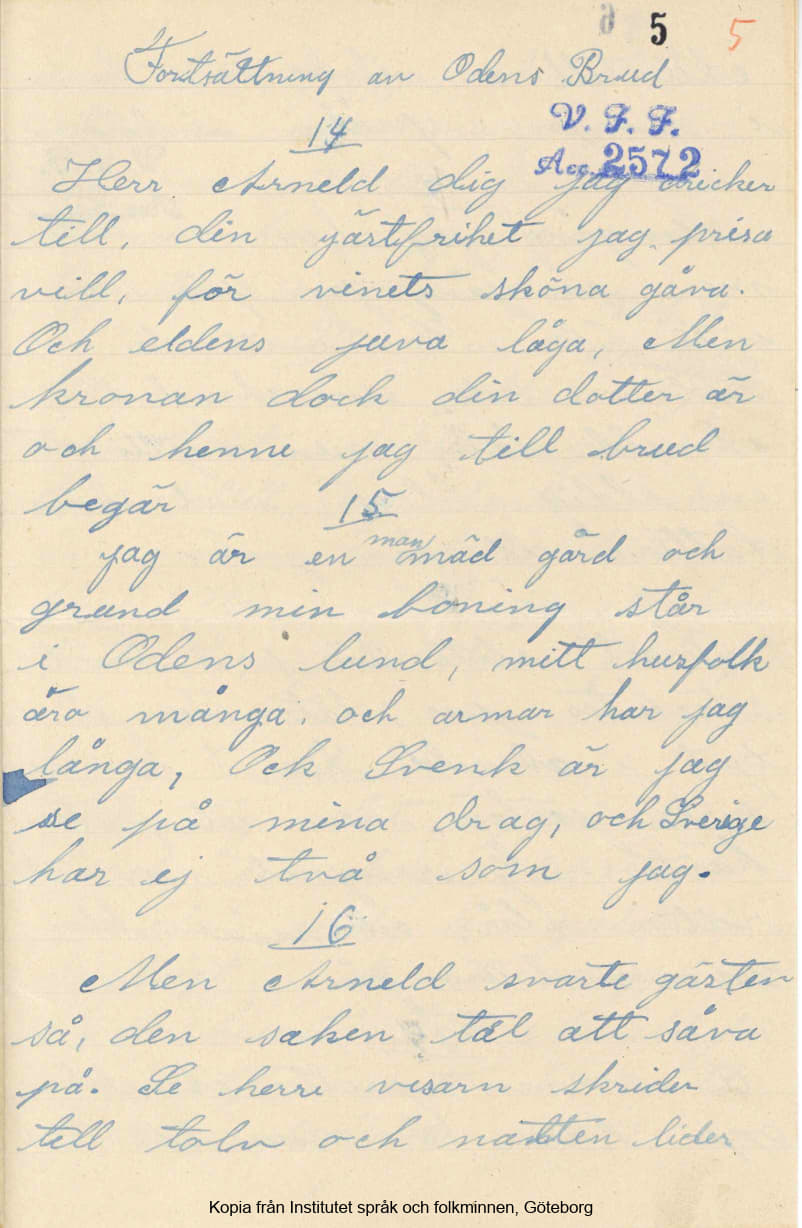 5 5
Fortsättning av Odens Brud
14
V. F. F.
Acc. 2572
Herr Arneld dig jag dricker
till, din gärtfrihet jag prisa
vill, för vinets sköna gåva.
Och eldens java låga, Men
kronan dock din dotter är
och henne jag till brud
begär
15
jag är en man mäd gård och
grund min boning står
i Odens lund, mitt husfolk
äro många. och armar har jag
långa, Ock Svenk är jag
se på mina drag, och Sverige
har ej två som jag.
16
Men Arneld svarte gästen
så, den saken tål att såva
på. Se herre visarn skrider
till tolv och natten lider
Kopia från Institutet språk och folkminnen, Göteborg